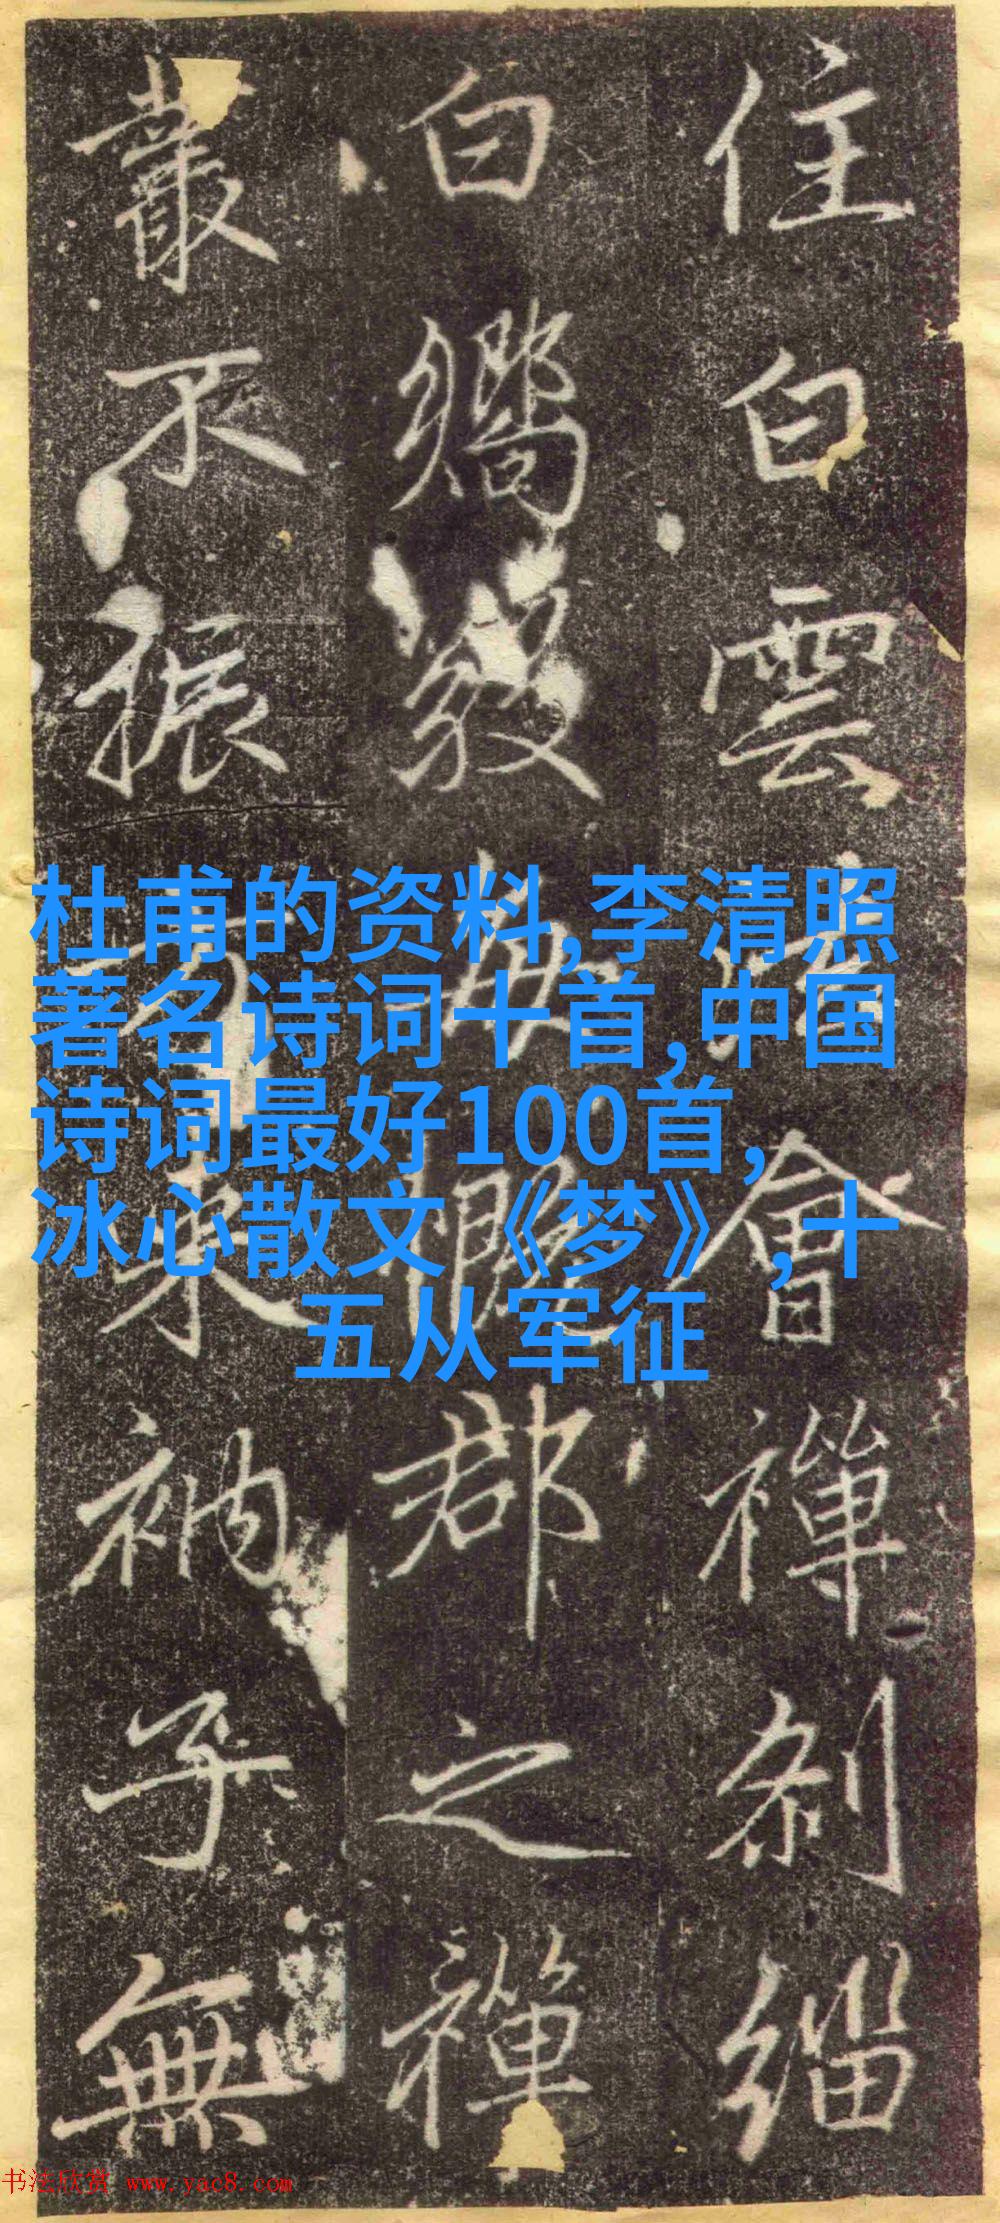 住白雲會禪刹緇
白每郡之禪
叢不振衲子無
杜甫的资料,李清照
著名诗词十首,中国
诗词最好100首,
冰心散文《梦》,十
五从军征
书法欣赏 www.yac8.com